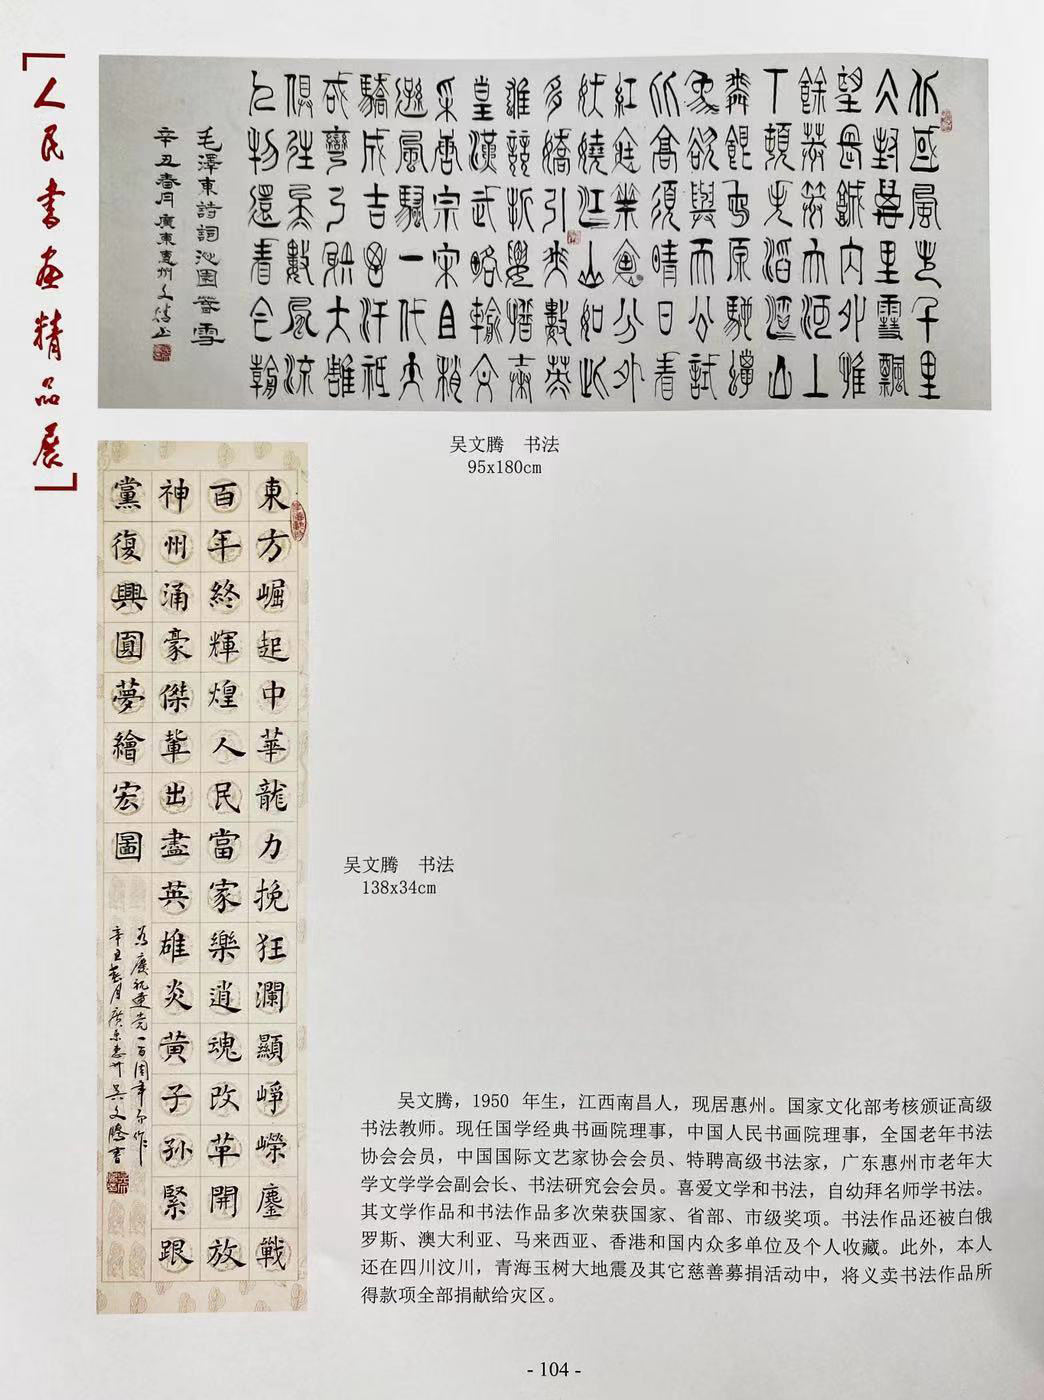 人民书画精品展
北國風光千里
冰封萬里雪飄
望長城內外惟
餘莽莽大河上
下頓失滔滔山
舞銀蛇原馳蠟
象欲與天公試
比高須晴日看
紅裝素裹分外
妖嬈江山如此
多嬌引無數英
雄競折腰惜秦
皇漢武略輸文
采唐宗宋祖稍
遜風騷一代天
驕成吉思汗祇
識彎弓射大雕
俱往矣數風流
人物還看今朝
毛澤東詩詞沁園春雪
辛丑春月廣東惠州文騰書
吴文腾 书法
95x180cm
東方崛起中華龍力挽狂瀾顯崢嶸鏖戰
百年終輝煌人民當家樂逍魂改革開放
神州涌豪傑輩出盡英雄炎黃子孫緊跟
黨復興圓夢繪宏圖
為慶祝建党一百周年而作
辛丑春月廣東惠州吳文騰書
吴文腾 书法
138x34cm
吴文腾，1950 年生，江西南昌人，现居惠州。国家文化部考核颁证高级
书法教师。现任国学经典书画院理事，中国人民书画院理事，全国老年书法
协会会员，中国国际文艺家协会会员、特聘高级书法家，广东惠州市老年大
学文学学会副会长、书法研究会会员。喜爱文学和书法，自幼拜名师学书法。
其文学作品和书法作品多次荣获国家、省部、市级奖项。书法作品还被白俄
罗斯、澳大利亚、马来西亚、香港和国内众多单位及个人收藏。此外，本人
还在四川汶川，青海玉树大地震及其它慈善募捐活动中，将义卖书法作品所
得款项全部捐献给灾区。
- 104 -